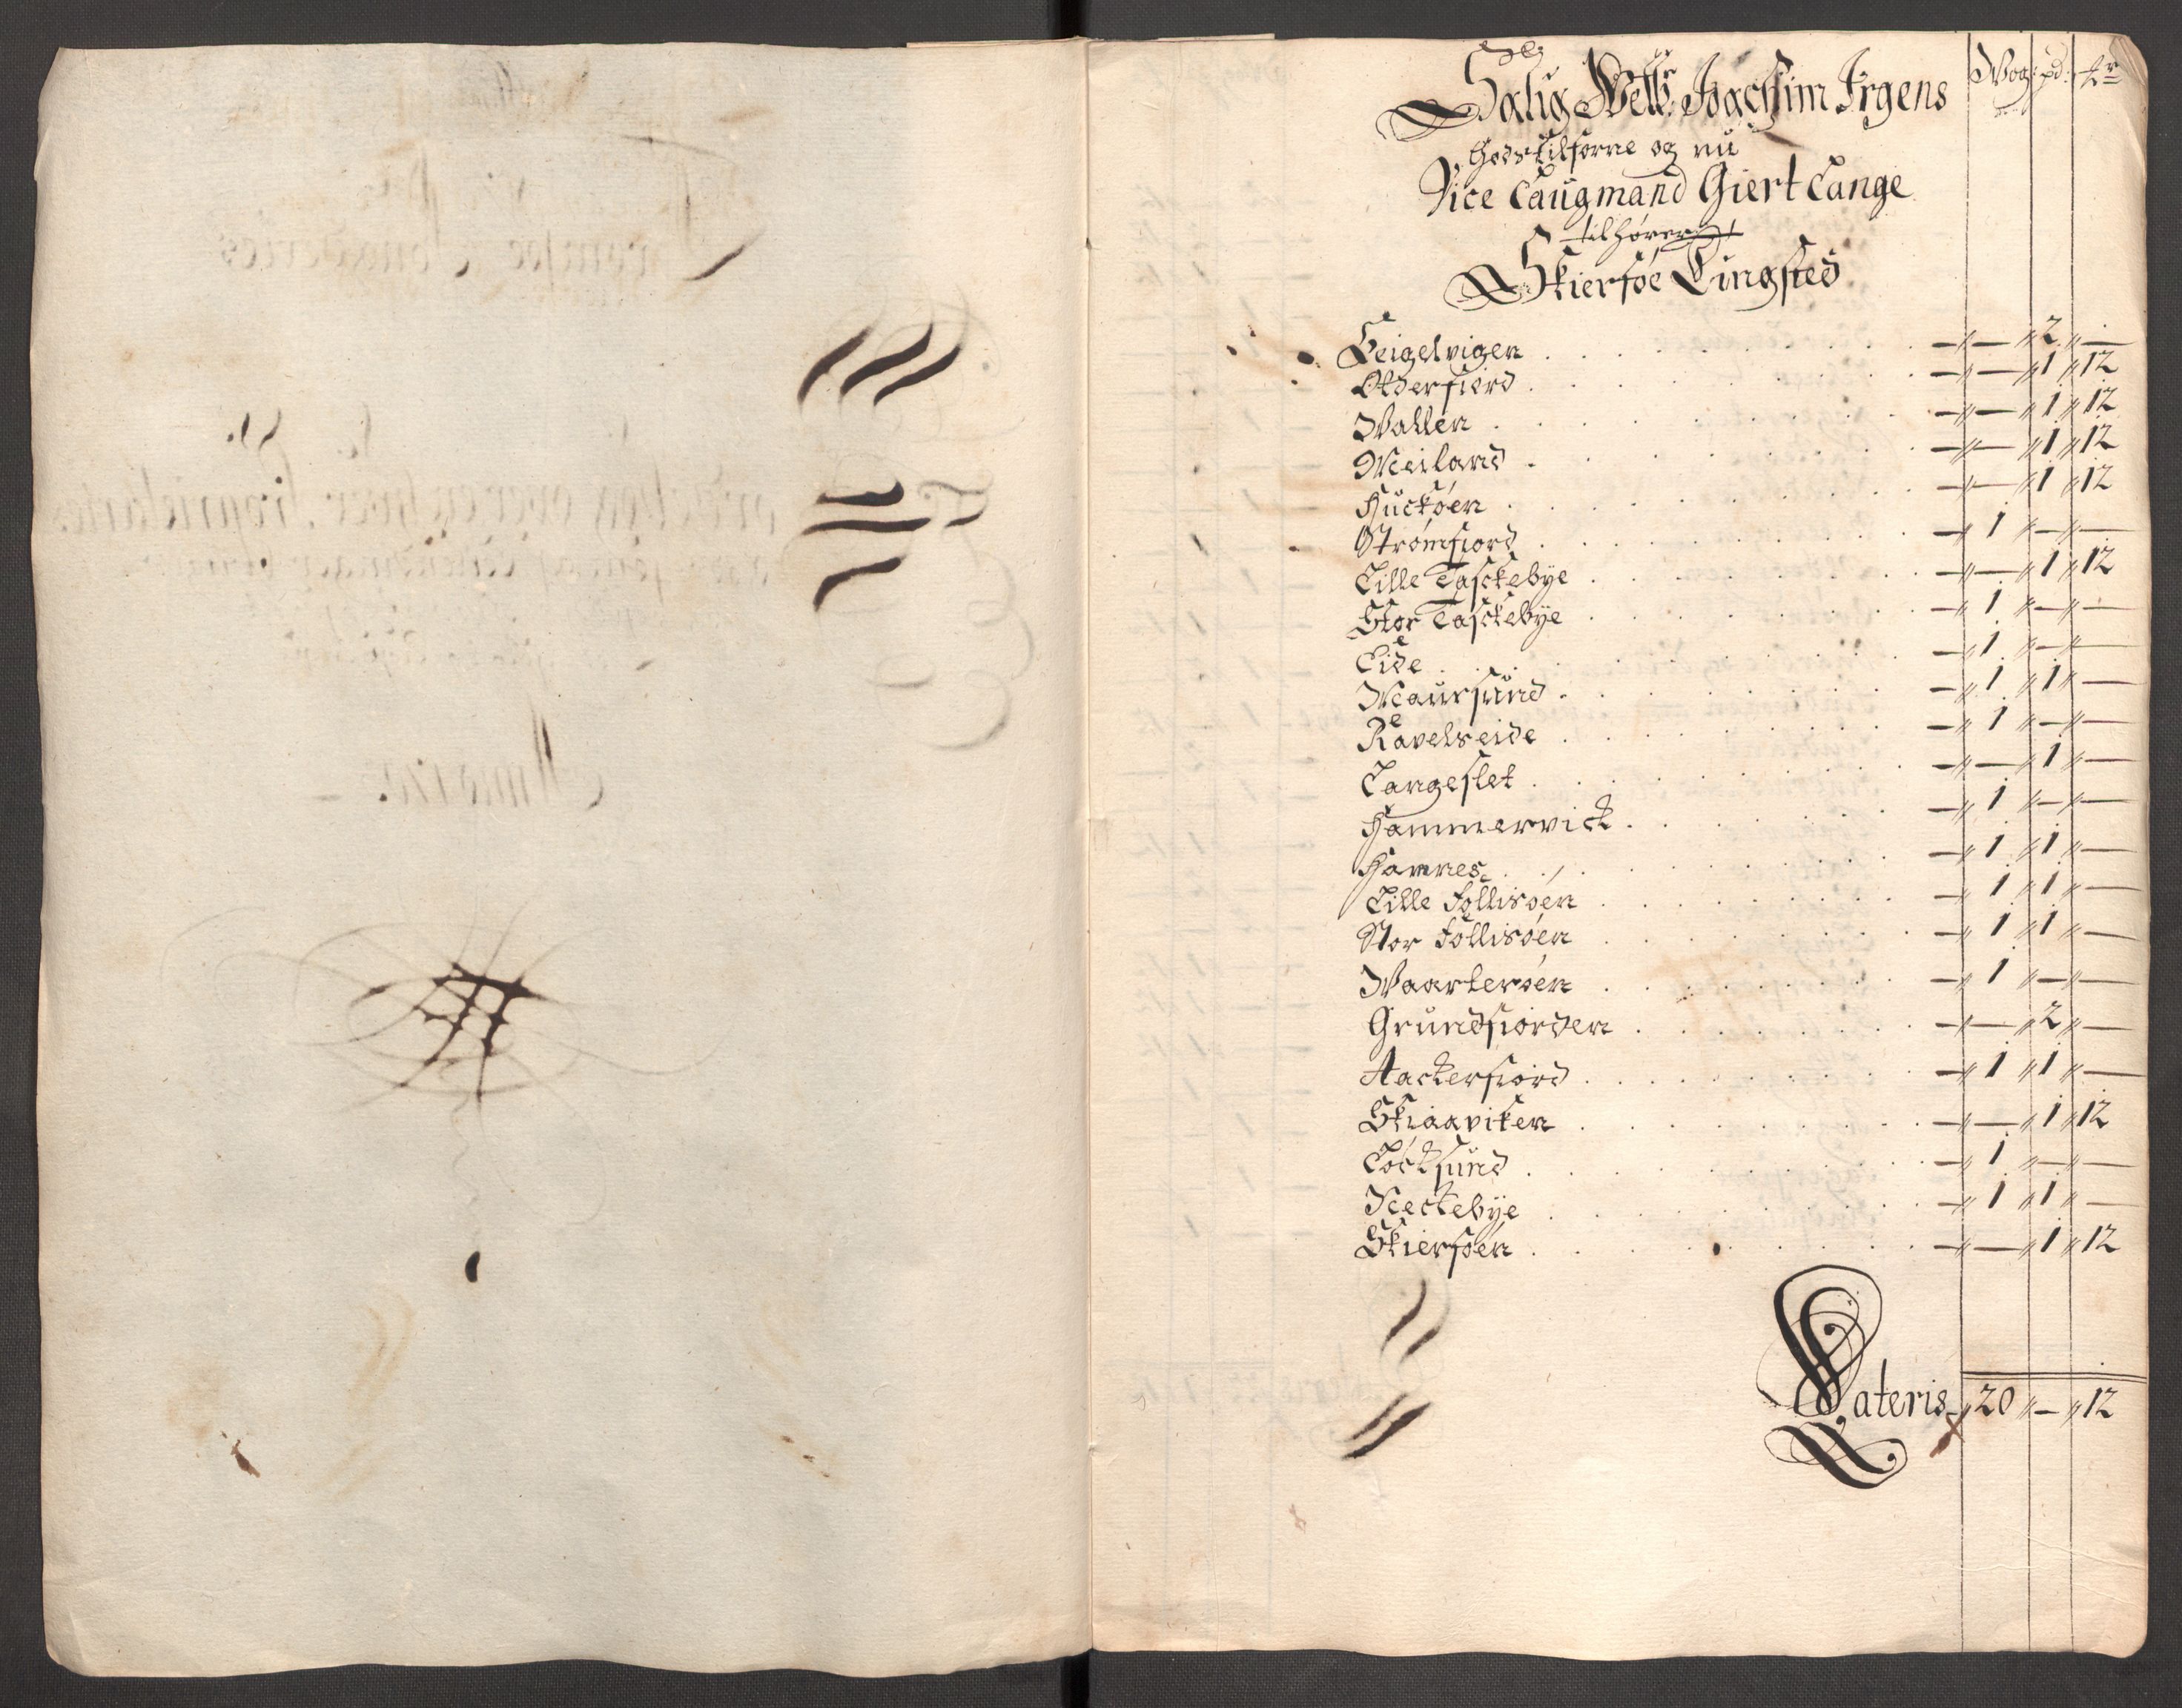 Wog: pd: 
Salig Welb: Joachim Irgens
Gods tilforne og nu
Vice Laugmand Giert Lange
tilhører
Skiersøe Tingsted
Seigelvigen . . . — 2 —
Olderfiord . . . — 1 12
Wallen . . . — 1 12
Meiland . . . — 1 12
Huckøen . . . — 1 12
Strømfiord . . . 1 — —
Lille Taschebye . . . — 1 12
Stor Taschebye . . . 1 — —
Eide . . . 1 — —
Maursund . . . 1 1 —
Ravelseide . . . 1 — —
Langeslet . . . — 1 —
Hammervick . . . 1 — —
Hamnes . . . 1 1 —
Lille Follisøen . . . 1 1 —
Stor Follisøen . . . 1 1 —
Waarterøen . . . 1 — —
Grundfiorden . . . — 2 —
Aackerfiord . . . 1 1 —
Skiaaviken . . . — 1 12
Løcksund . . . 1 — —
Meckebye . . . 1 1 —
Skiersøen . . . — 1 12
Lateris 20 — 12